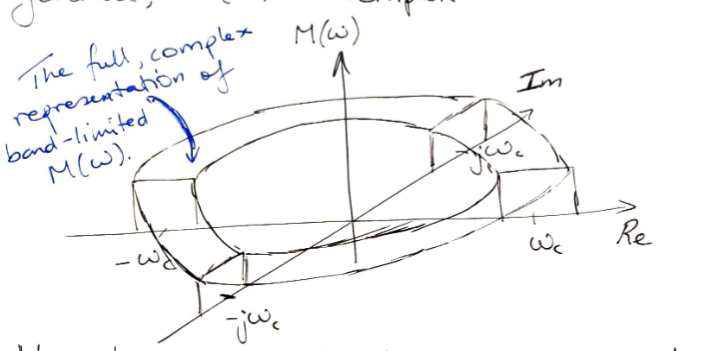 M(ω)
The full, complex
representation of
band-limited
M(ω).
Im
-jω꜀
-ω꜀
ω꜀
Re
-jω꜀